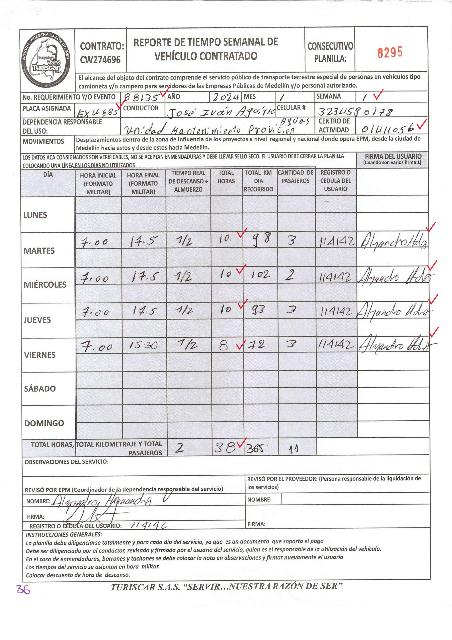 CONTRATO:
CW274696
REPORTE DE TIEMPO SEMANAL DE
VEHÍCULO CONTRATADO
CONSECUTIVO
PLANILLA:
8295
El alcance del objeto del contrato comprende el servicio público de transporte terrestre especial de personas en vehículos tipo
camioneta y/o campero para servidores de las Empresas Públicas de Medellín y/o personal autorizado.
No. REQUERIMIENTO Y/O EVENTO 88135 AÑO 2024 MES 1 SEMANA 1
PLACA ASIGNADA CONDUCTOR José Iván CELULAR #
DEPENDENCIA RESPONSABLE
DEL USO: Unidad Mantenimiento Provisión Aguas
CENTRO DE
ACTIVIDAD
MOVIMIENTOS Desplazamientos dentro de la zona de influencia de los proyectos a nivel regional y nacional donde opera EPM, desde la ciudad de
Medellín hacia estos y desde estos hacia Medellín.
FIRMA DEL USUARIO
DÍA HORA INICIAL (FORMATO MILITAR) HORA FINAL (FORMATO MILITAR) TIEMPO REAL DE DESCANSO - ALMUERZO TOTAL HORAS TOTAL KM DIA RECORRIDO CANTIDAD DE PASAJEROS REGISTRO O CEDULA DEL USUARIO
LUNES
MARTES 7:00 17.5 1/2 10 98 3 114142
MIÉRCOLES 7:00 17.5 1/2 10 102 2 114142
JUEVES 7:00 17.5 1/2 10 93 3 114142
VIERNES 7:00 1530 1/2 8 72 3 114142
SÁBADO
DOMINGO
TOTAL HORAS, TOTAL KILOMETRAJE Y TOTAL
PASAJEROS 2 38 365 11
OBSERVACIONES DEL SERVICIO:
REVISÓ POR EPM (Coordinador de la dependencia responsable del servicio)
REVISÓ POR EL PROVEEDOR (Persona responsable de la liquidación de
los servicios)
NOMBRE: Alejandro
NOMBRE:
FIRMA:
REGISTRO O CÉDULA DEL USUARIO: 114142
FIRMA:
INSTRUCCIONES GENERALES:
La planilla debe diligenciarse totalmente y para cada día del servicio, ya que es un documento que soporta el pago
Debe ser diligenciada por el conductor, revisada y firmada por el usuario del servicio, quien es el responsable de la utilización del vehículo.
En el caso de enmendaduras, borrones y tachones se debe colocar la nota en observaciones y firmar nuevamente el usuario.
Los tiempos del servicio se asientan en hora militar.
Colocar descuento de hora de descanso.
36
TURISCAR S.A.S. "SERVIR...NUESTRA RAZÓN DE SER"